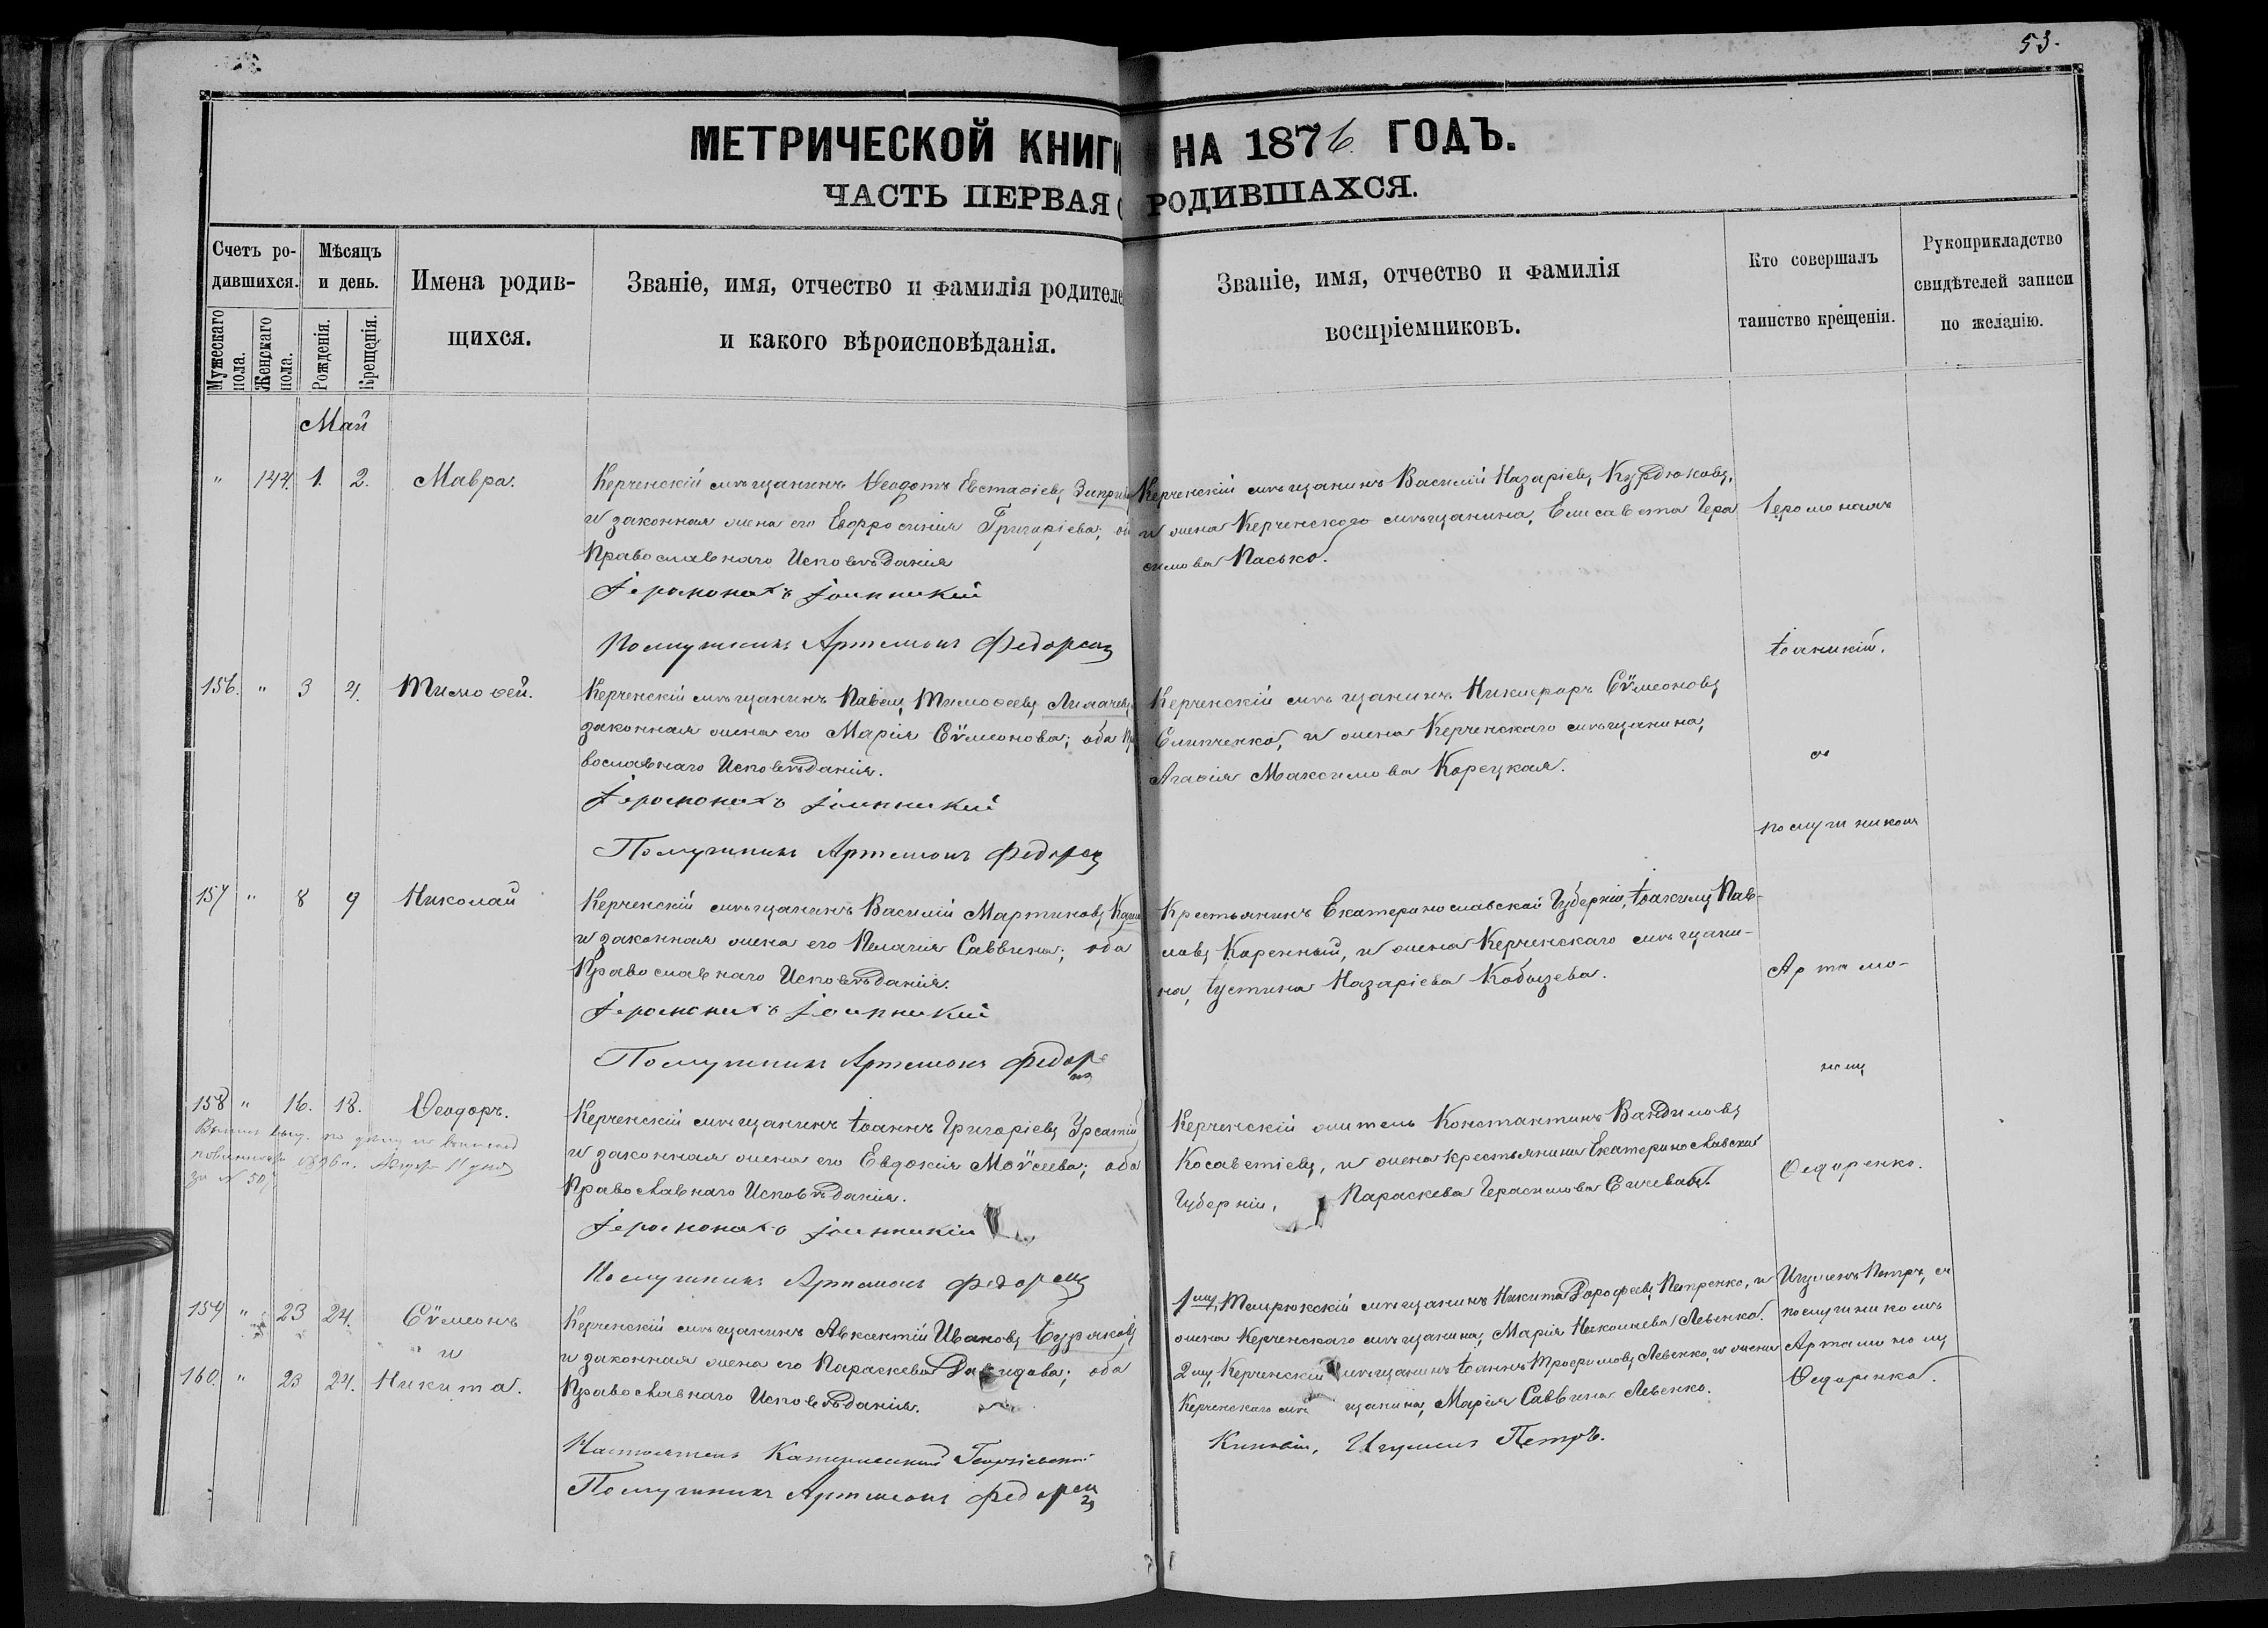 53.
МЕТРИЧЕСКОЙ КНИГИ НА 1876 ГОДЪ.
ЧАСТЬ ПЕРВАЯ О РОДИВШАХСЯ.
Счетъ ро-
дившихся.
Мужескаго пола.
Женскаго пола.
Мѣсяцъ
и день.
Рожденія.
Крещенія.
Имена родив-
щихся.
Званіе, имя, отчество и фамилія родителе
и какого вѣроисповѣданія.
Званіе, имя, отчество и фамилія
воспріемниковъ.
Кто совершалъ
таинство крещенія.
Рукоприкладство
свидѣтелей записи
по желанію.
Май
" 144. 1. 2. Мавра.
Керченскій мѣщанинъ Ѳеодотъ Евстаѳіевъ
и законная жена его Евфросинія Григоріева;
Православнаго Исповѣданія
Іеромонахъ Іоанникій
Послушникъ Артемонъ
Керченскій мѣщанинъ Василій Назаріевъ Курдюковъ,
и жена Керченскаго мѣщанина, Елисавета Гера
симова Пасько.
156. " 3 4. Тимоѳей.
Керченскій мѣщанинъ Павелъ Тимоѳеевъ
законная жена его Марія Сѵмеонова; оба Пра
вославнаго Исповѣданія.
Іеромонахъ Іоанникій
Послушникъ Артемонъ
Керченскій мѣщанинъ Никифоръ Сѵмеоновъ
Слипченко, и жена Керченскаго мѣщанина,
Агаѳія Максимова Корецкая.
157 " 8 9 Николай
Керченскій мѣщанинъ Василій Мартиновъ
и законная жена его Пелагія Саввина; оба
Православнаго Исповѣданія.
Іеромонахъ Іоанникій
Послушникъ Артемонъ
Крестьянинъ Екатеринославской Губерніи, Іоакимъ Пав-
ловъ Коренный, и жена Керченскаго мѣщани-
на, Іустина Назаріева Кобызева.
158 " 16. 18. Ѳеодоръ.
Керченскій мѣщанинъ Іоаннъ Григоріевъ
и законная жена его Евдокія Моѵсеева; оба
Православнаго Исповѣданія.
Іеромонахъ Іоанникій
Послушникъ Артамонъ
Керченскій житель Константинъ
и жена крестьянина Екатеринославской
Губерніи, Параскева Герасимова
Іеромонахъ
Іоаникій.
со
послушникомъ
Артамо-
номъ
Ѳедоренко.
159 " 23 24. Сѵмеонъ
и
160. " 23 24. Никита.
Керченскій мѣщанинъ Авксентій Ивановъ Буряковъ
и законная жена его Параскева Давидова; оба
Православнаго Исповѣданія.
Настоятель Катерлезской Георгіевской
Послушникъ Артемонъ
1му, Темрюкскій мѣщанинъ Никита Дорофеевъ Петренко, и
жена Керченскаго мѣщанина, Марія Николаева Левенко.
2му, Керченскій мѣщанинъ Іоаннъ Трофимовъ Левенко, и жена
Керченскаго мѣщанина, Марія Саввина Левенко.
Киновіи, Игуменъ Петръ.
Игуменъ Петръ, съ
послушникомъ
Артамономъ
Ѳедоренко.